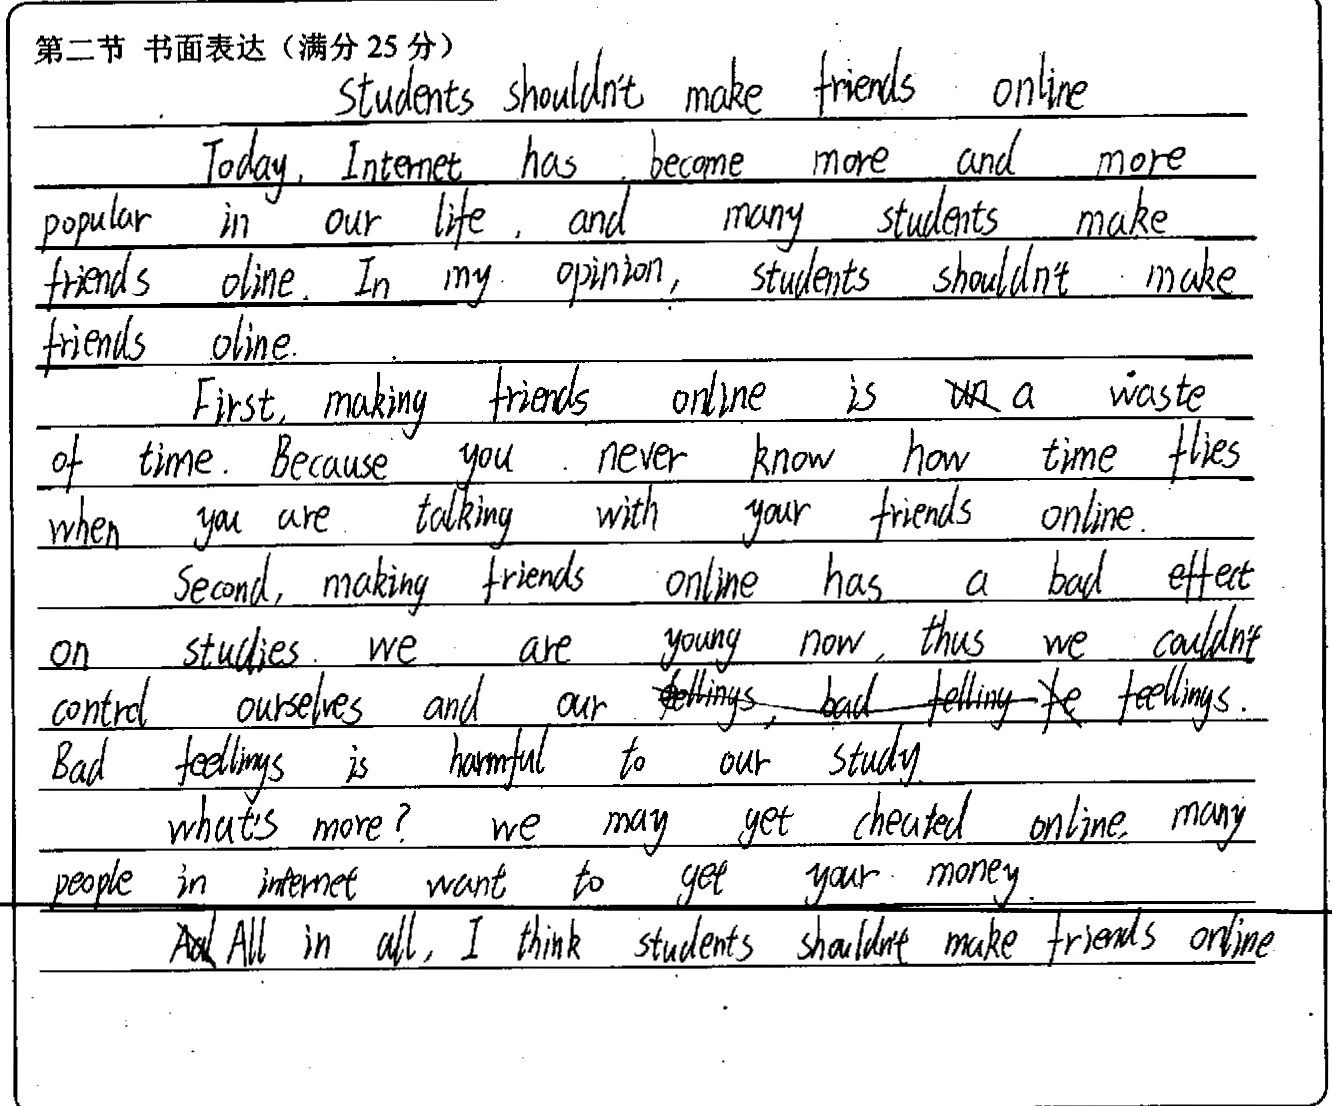 第二节 书面表达（满分 25 分）
Students shouldn't make friends online
Today, Internet has become more and more
popular in our life, and many students make
friends oline. In my opinion, students shouldn't make
friends oline.
First, making friends online is a waste
of time. Because you never know how time flies
when you are talking with your friends online.
Second, making friends online has a bad effect
on studies. we are young now, thus we couldn't
control ourselves and our feellings.
Bad feellings is harmful to our study
what's more? we may get cheated online, many
people in internet want to get your money.
All in all, I think students shouldn't make friends online